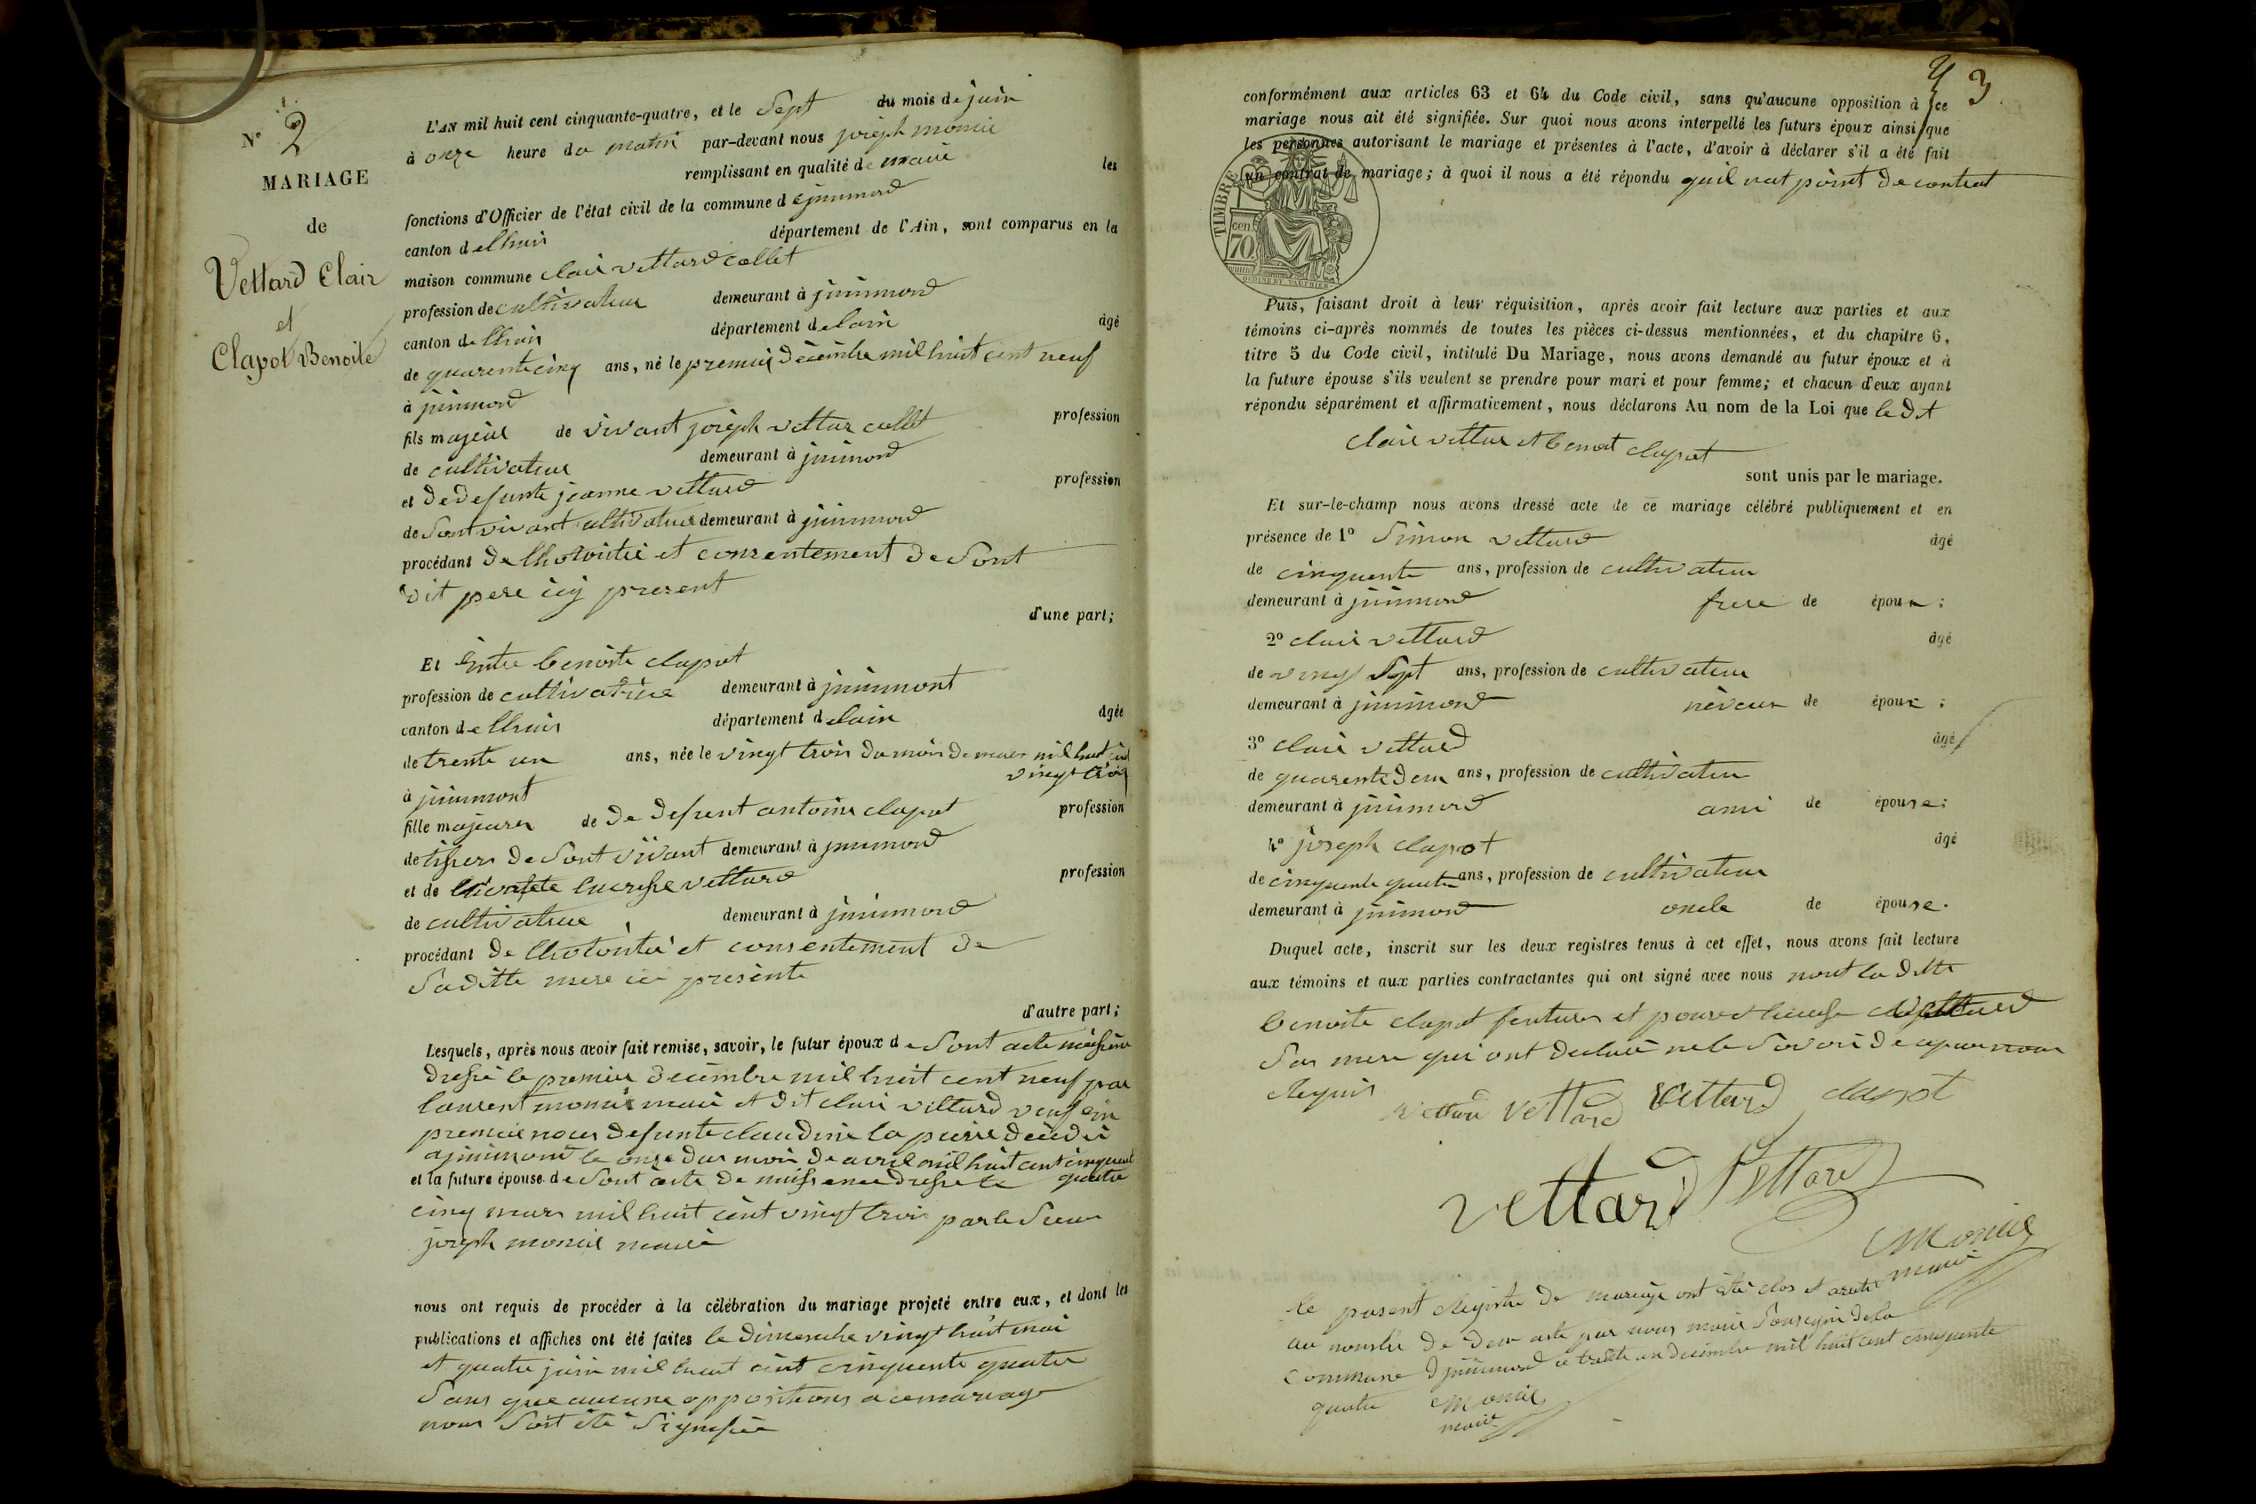 N° 2
MARIAGE
de
Vettard Clair
et
Clapot Benoite
L'AN mil huit cent cinquante-quatre, et le Sept du mois de juin
à onze heure du matin par-devant nous joseph monié
remplissant en qualité de maire les
fonctions d'Officier de l'état civil de la commune d
canton de lhuis département de l'Ain, sont comparus en la
maison commune clair vettard collet
profession de cultivateur demeurant à
canton de lhuis département de lain âgé
de quarente cinq ans, né le premier décembre mil huit cent neuf
à
fils majeur de vivant joseph vettar collet profession
de cultivateur demeurant à
et de defunte jeanne vettard profession
de Sont vivant demeurant à
procédant de et consentement de Sont
dit pere icy present
d'une part;
Et Entre benoite clapot
profession de cultivatrice demeurant à
canton de lhuis département de lain âgée
de trente un ans, née le vingt trois du mois de mars mil huit cent
vingt trois
à
fille majeure de de defunt antoine clapot profession
de de Sont vivant demeurant à
et de vettard profession
de cultivatrice demeurant à
procédant de et consentement de
Saditte mere ici présente
d'autre part;
Lesquels, après nous avoir fait remise, savoir, le futur époux de Sont acte
dressé le premier décembre mil huit cent neuf par
laurent monié maire et dit clair vettard veuf en
premiere noces defunte claudine la pierre décédée
le onze du mois de avril mil huit cent cinquante
et la future épouse de Sont acte de dressé le quatre
cinq mars mil huit cent vingt trois par le Sieur
joseph monié maire
nous ont requis de procéder à la célébration du mariage projeté entre eux, et dont les
publications et affiches ont été faites le dimanche vingt huit mai
et quatre juin mil huit cent cinquente quatre
Sans que aucune oppositions a ce mariage
nous Soit été Signifiée
3
conformément aux articles 63 et 64 du Code civil, sans qu'aucune opposition à ce
mariage nous ait été signifiée. Sur quoi nous avons interpellé les futurs époux ainsi que
les personnes autorisant le mariage et présentes à l'acte, d'avoir à déclarer s'il a été fait
un contrat de mariage; à quoi il nous a été répondu point de contrat
TIMBRE
70 cen
Puis, faisant droit à leur réquisition, après avoir fait lecture aux parties et aux
témoins ci-après nommés de toutes les pièces ci-dessus mentionnées, et du chapitre 6,
titre 5 du Code civil, intitulé Du Mariage, nous avons demandé au futur époux et à
la future épouse s'ils veulent se prendre pour mari et pour femme; et chacun d'eux ayant
répondu séparément et affirmativement, nous déclarons Au nom de la Loi que le dit
clair vettar et benoit clapot
sont unis par le mariage.
Et sur-le-champ nous avons dressé acte de ce mariage célébré publiquement et en
présence de 1° Simon vettard âgé
de cinquente ans, profession de cultivateur
demeurant à frere de époux;
2° clair vettard âgé
de vingt Sept ans, profession de cultivateur
demeurant à néveux de époux;
3° clair vettard âgé
de quarente deux ans, profession de cultivateur
demeurant à ami de épouse;
4° joseph clapot âgé
de cinquente quatre ans, profession de cultivateur
demeurant à oncle de épouse.
Duquel acte, inscrit sur les deux registres tenus à cet effet, nous avons fait lecture
aux témoins et aux parties contractantes qui ont signé avec nous nont la ditte
benoite clapot future et
Sa mere qui ont declaré ne le Savoir de
requis
vettard vettard vettard clapot
vettard Vettard
Monié
maire
le présent Registre de mariage ont été clos et arreté
au nombre de deux acte par nous maire Sousigné de la
commune ce trente un décembre mil huit cent cinquente
quatre Monié
maire